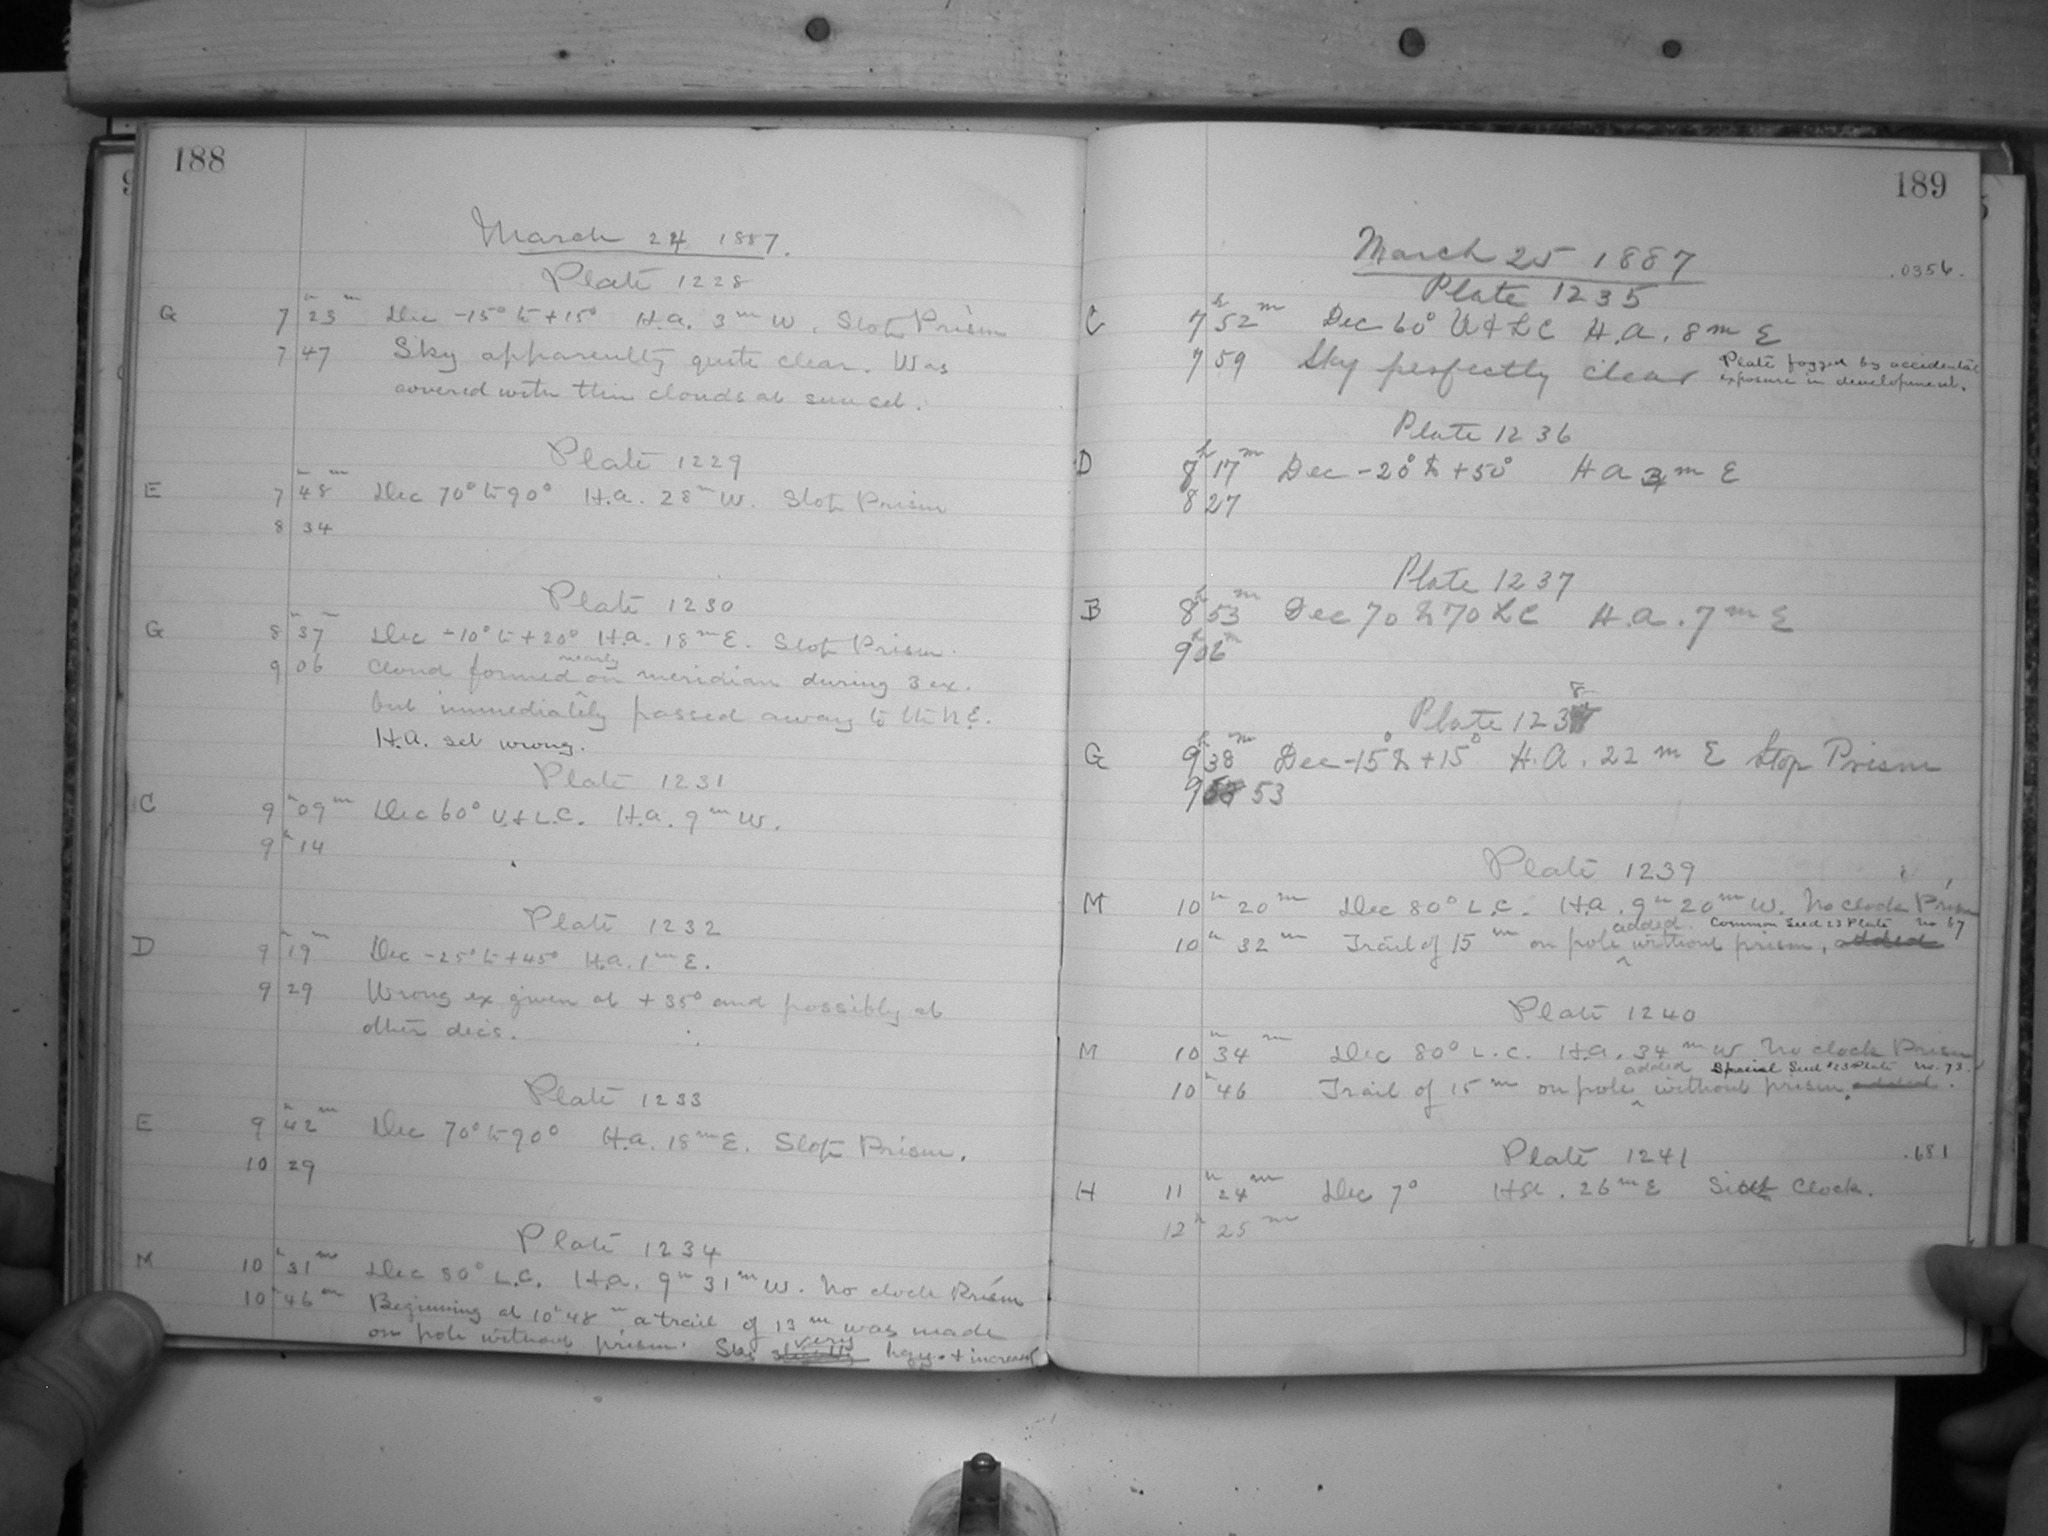 188
March 24 1887.
Plate 1228
G 7h 23m Dec -15° to +15° H.A. 3m W. Stop Prism
7 47 Sky apparently quite clear. Was
covered with thin clouds at sunset.
Plate 1229
E 7h 48m Dec 70° to 90° H.A. 28m W. Stop Prism
8 34
Plate 1230
G 8h 37m Dec -10° to +20° H.A. 18m E. Stop Prism.
9 06 Cloud formed nearly on meridian during 3 ex.
but immediately passed away to the N.E.
H.A. set wrong.
Plate 1231
C 9h 09m Dec 60° U. & L.C. H.A. 9m W.
9h 14
Plate 1232
D 9h 19m Dec -25° to +45° H.A. 1m E.
9 29 Wrong ex given at +35° and possibly at
other decs.
Plate 1233
E 9h 42m Dec 70° to 90° H.A. 18m E. Stop Prism.
10 29
Plate 1234
M 10h 31m Dec 80° L.C. H.A. 9h 31m W. No clock Prism
10h 46m Beginning at 10h 48m a trail of 13m was made
on pole without prism. Sky very hazy + increas
189
March 25 1887
.0356.
Plate 1235
C 7h 52m Dec 60° U & L C H.A. 8m E
7 59 Sky perfectly clear Plate fogged by accidental
exposure in development.
Plate 1236
D 8h 17m Dec -20° to +50° H A 3m E
8 27
Plate 1237
B 8h 53m Dec 70 to 70 L C H.A. 7m E
9h 06m
Plate 1238
G 9h 38m Dec -15° to +15° H.A. 22m E Stop Prism
9 53
Plate 1239
M 10h 20m Dec 80° L.C. H.A. 9h 20m W. No clock Prism
added. Common Seed 23 Plate No 67
10h 32m Trail of 15m on pole without prism, added
Plate 1240
M 10h 34m Dec 80° L.C. H.A. 34m W No clock Prism
added Special Seed #23 Plate No. 73.
10h 46 Trail of 15m on pole without prism. added.
Plate 1241
.681
H 11h 24m Dec 7° H.A. 26m E Clock.
12h 25m